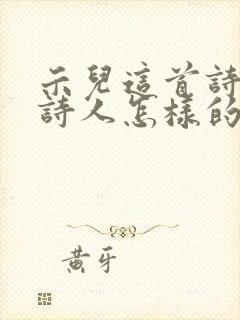 示兒這首詩
詩人怎樣的
黃牙